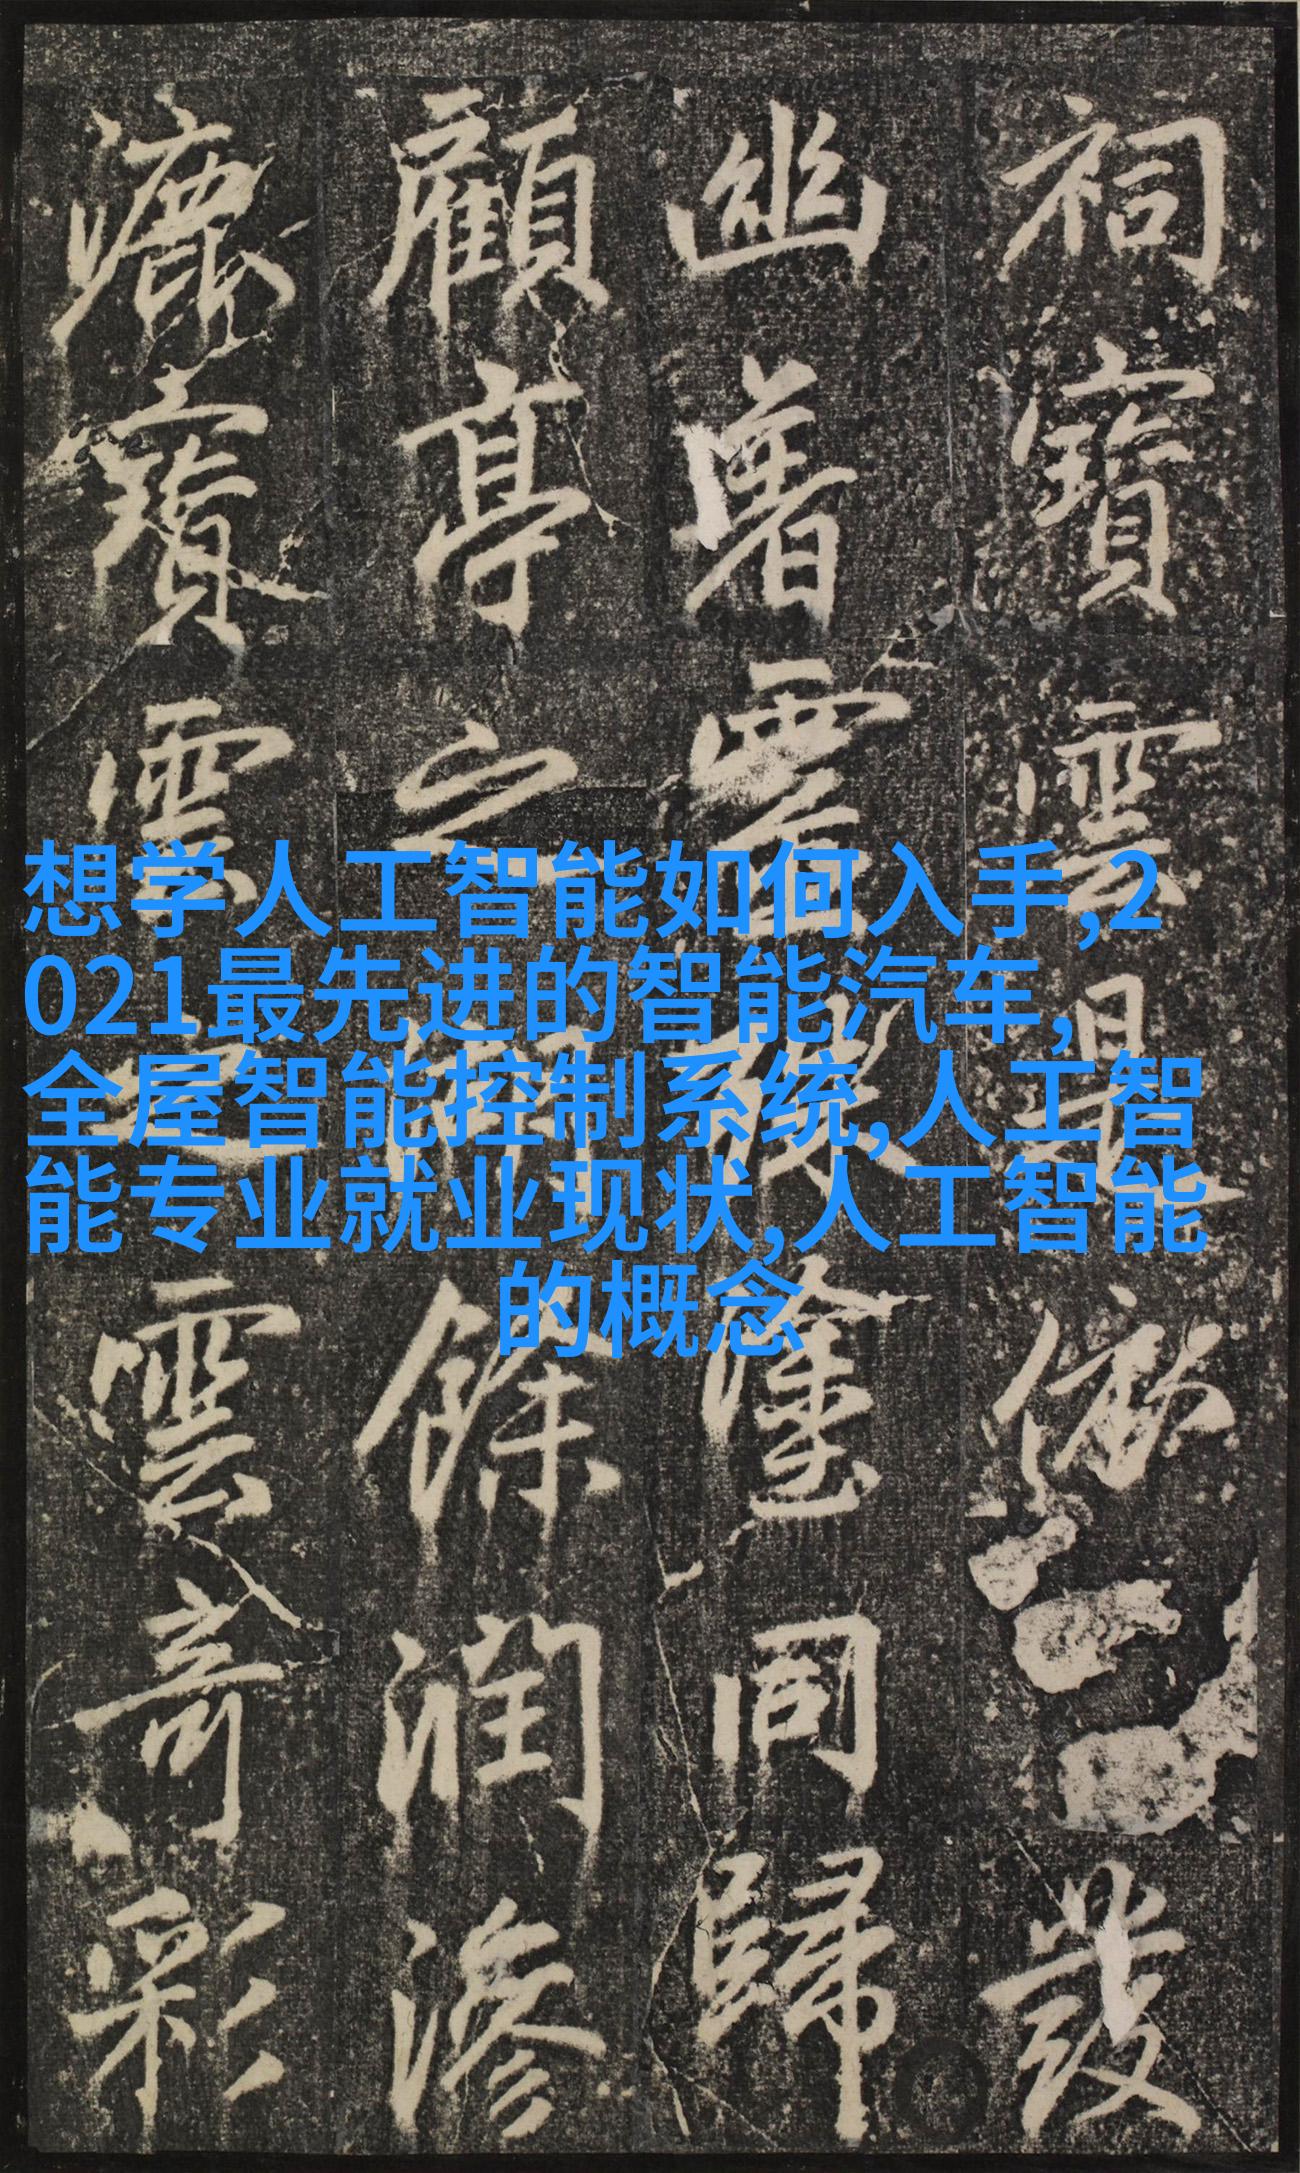 想学人工智能如何入手,2
021最先进的智能汽车,
全屋智能控制系统,人工智
能专业就业现状,人工智能
的概念
祠寶雲發
幽署隧同歸
顧亭之餘潤滲
漉寶雲雲奇彩